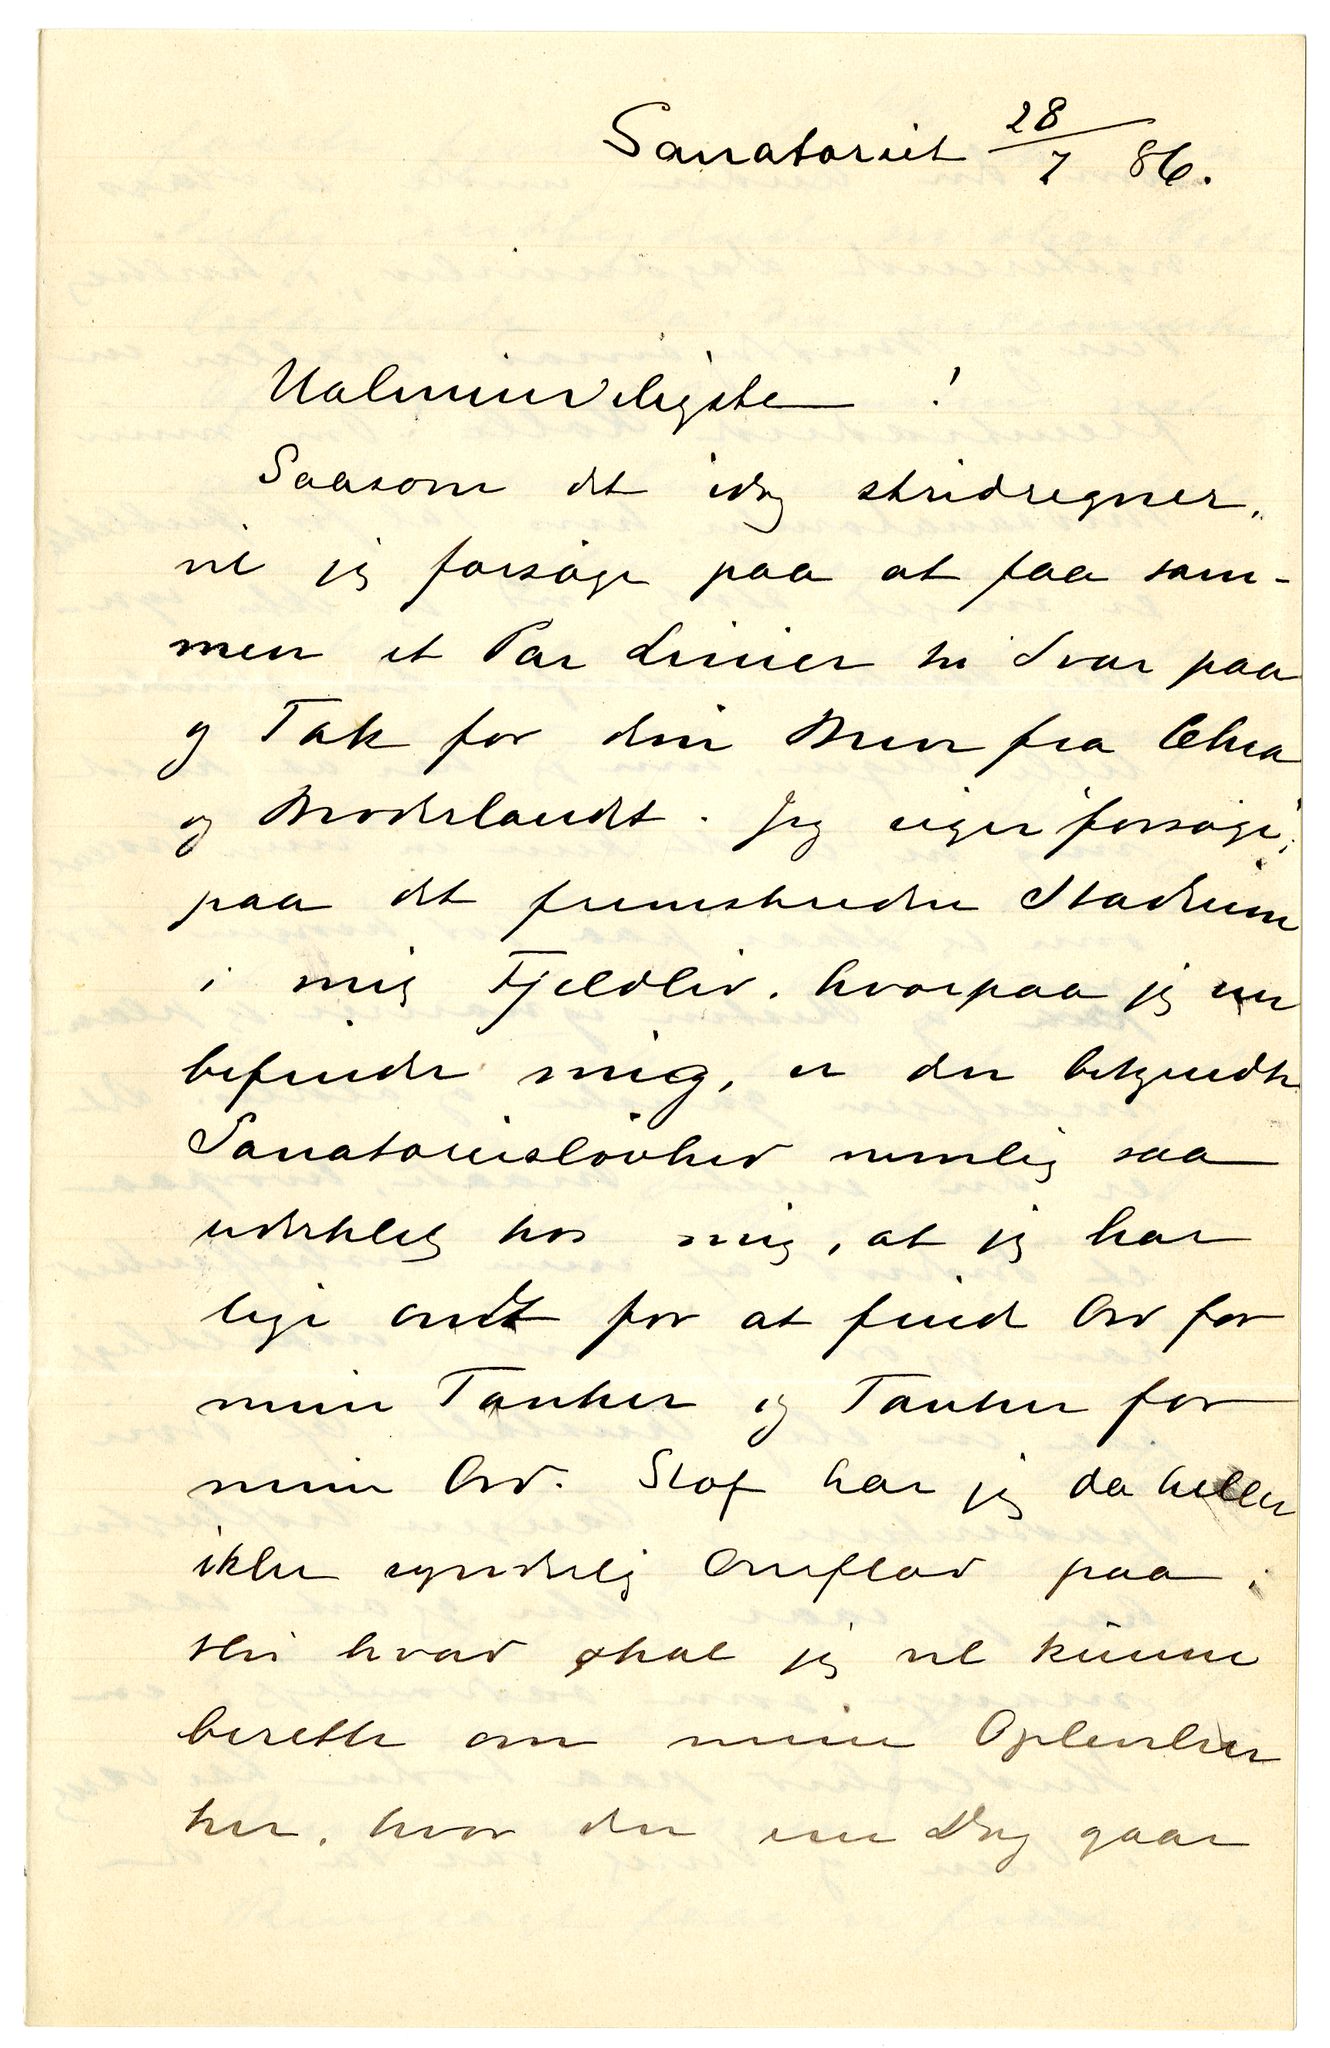 Sanatoriet 28/7 86.
Ualmindeligste !
Saasom det idag stridregner,
vil jeg forsøge paa at faa sam-
men et Par Linier til Svar paa
og Tak for din Brev fra Chra
og Moderlandet. Jeg siger "forsøge",
paa det fremskredne Stadium
i mig Fjeldliv, hvorpaa jeg nu
befinder mig, er den betyndte
Sanatoriesløvhed nemlig saa
udviklet hos mig, at jeg har
lige ondt for at finde Ord for
mine Tanker og Tanker for
mine Ord. Stof har jeg da heller
ikke synderlig Overflod paa,
thi hvad skal jeg vel kunne
berette om mine Oplevelser
her, hvor den ene Dag gaar